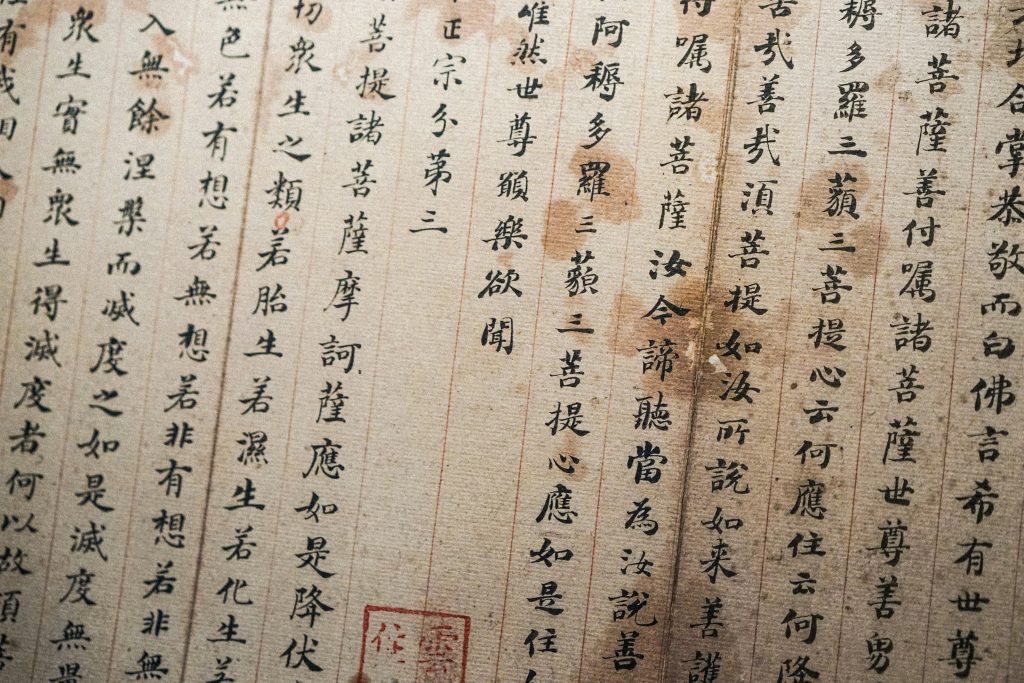 地合掌恭敬而白佛言希有世尊
諸菩薩善付嘱諸菩薩世尊善男
耨多羅三藐三菩提心云何應住云何降
善哉善哉湏菩提如汝所說如来善護
付嘱諸菩薩汝今諦聽當為汝說善
阿耨多羅三藐三菩提心應如是住
唯然世尊願樂欲聞
正宗分第三
菩提諸菩薩摩訶薩應如是降伏
切衆生之類若胎生若濕生若化生若
無色若有想若無想若非有想若非無
入無餘涅槃而滅度之如是滅度無量
衆生實無衆生得滅度者何以故湏菩
有我相人相